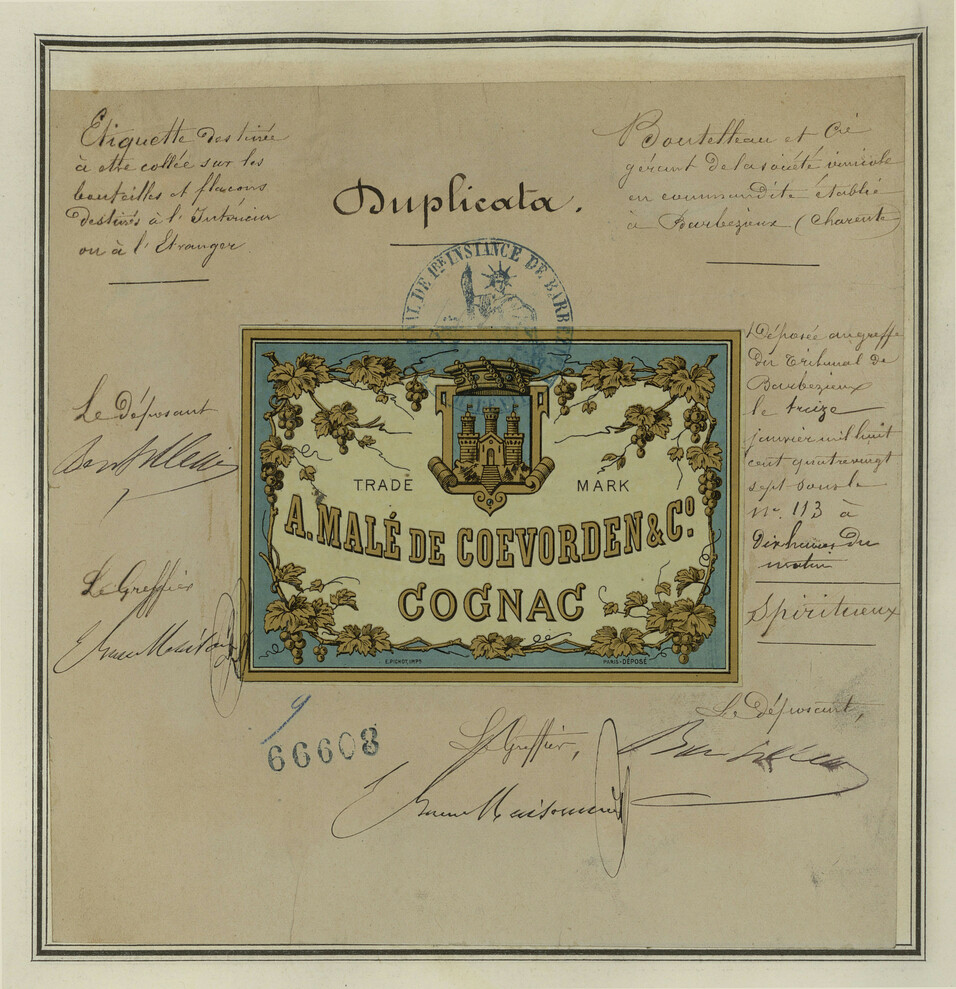 Etiquette destinée
à etre collée sur les
bouteilles et flacons
destinés à l'Intérieur
ou à l'Etranger
Duplicata.
Boutelleau et Cie
gérant de la société vinicole
en commandite établie
à Barbezieux (Charente)
DE 1RE INSTANCE DE BARBE
Le déposant
Le Greffier
TRADE MARK
A. MALÉ DE COEVORDEN & Co.
COGNAC
E.PICHOT, IMPR PARIS-DÉPOSÉ
Déposée au greffe
du Tribunal de
Barbezieux
le treize
janvier mil huit
cent quatrevingt
sept sous le
No. 113 à
dix heures du
matin
Spiritueux
66608
Le Greffier,
Le déposant,